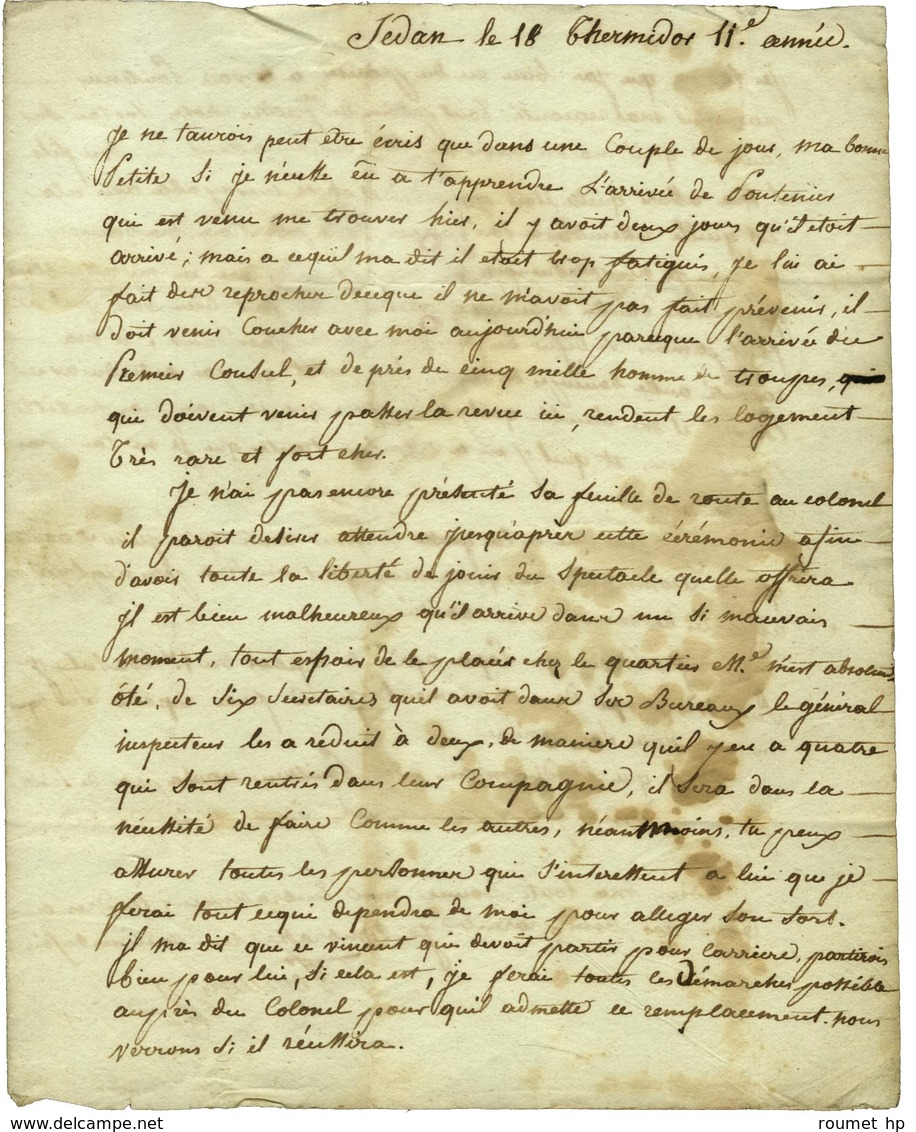 Sedan le 18 Thermidor 11.e année.
Je ne taurois peut etre écris que dans une Couple de jour, ma bonne
Petite si je n'eusse eu a t'apprendre L'arrivée de Pontenier
qui est venu me trouver hier, il y avoit deux jours qu'il etoit
arrivé; mais a cequil ma dit il etoit trop fatigués, je lui ai
fait des reproches deceque il ne m'avoit pas fait prévenir, il
doit venir Coucher avec moi aujourd'hui parceque l'arrivée du
Premier Consul, et de près de cinq mille homme de troupes,
qui doivent venir passer la revue ici, rendent les logement
Très rare et fort cher.
Je n'ai pas encore présenté sa feuille de route au colonel
il paroit desirer attendre jusqu'après cette cérémonie afin
d'avoir toute la liberté de jouir du Spectacle quelle offrira
il est bien malheureux qu'il arrive dans un si mauvais
moment, tout espoir de le placer chez le quartier M.e m'est absolum
ôté, de six secretaires quil avoit dans ses Bureaux le général
inspecteur les a reduit à deux, de maniere quil y en a quatre
qui sont rentrés dans leur Compagnie, il sera dans la
nécessité de faire Comme les autres, néanmoins, tu peux
assurer toutes les personnes qui s'interessent a lui que je
ferai tout cequi dependra de moi pour alleger son sort.
il ma dit que ce vincent qui devoit partir pour carriere, partirois
bien pour lui, si cela est, je ferai toutes les démarches possible
auprès du Colonel pour quil admette ce remplacement. nous
verrons si il réussira.